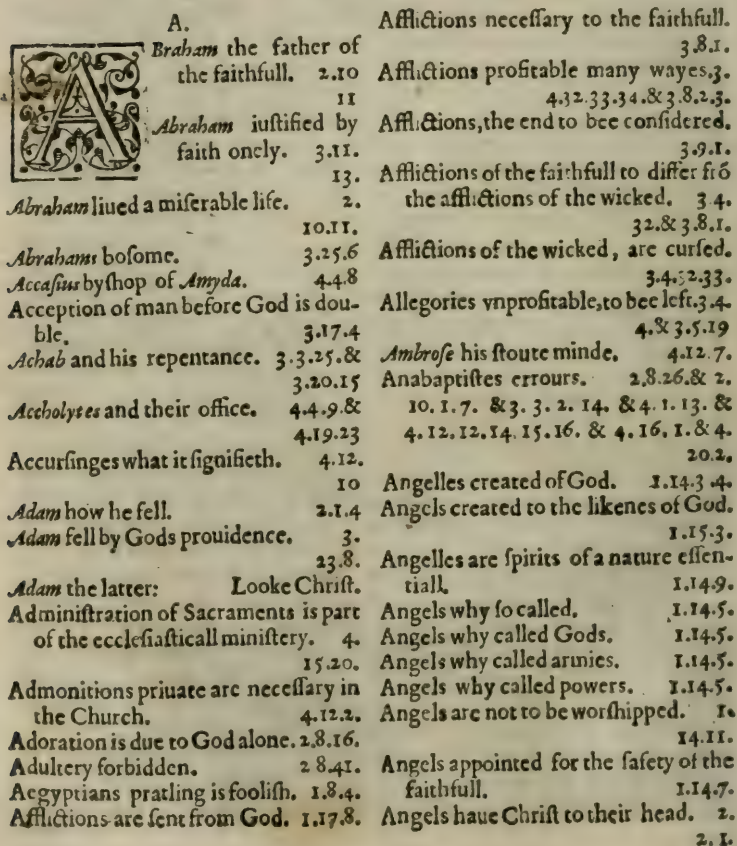 A.
ABraham the father of
the faithfull. 2.10
11
Abraham iuſtified by
faith onely. 3.11.
13.
Abraham liued a miſerable life. 2.
10.11.
Abrahams boſome. 3.25.6
Accaſius byſhop of Amyda. 4.4.8
Acception of man before God is dou-
ble. 3.17.4
Achab and his repentance. 3.3.25.&
3.20.15
Accholytes and their office. 4.4.9.&
4.19.23
Accurſinges what it ſignifieth. 4.12.
10
Adam how he fell. 2.1.4
Adam fell by Gods prouidence. 3.
23.8.
Adam the latter: Looke Chriſt.
Adminiſtration of Sacraments is part
of the eccleſiaſticall miniſtery. 4.
15.20.
Admonitions priuate are neceſſary in
the Church. 4.12.2.
Adoration is due to God alone. 2.8.16.
Adultery forbidden. 2 8.41.
Aegyptians pratling is fooliſh. 1.8.4.
Afflictions are ſent from God. 1.17.8.
Afflictions neceſſary to the faithfull.
3.8.1.
Afflictions profitable many wayes.3.
4.32.33.34.& 3.8.2.3.
Afflictions,the end to bee conſidered.
3.9.1.
Afflictions of the faithfull to differ frõ
the afflictions of the wicked. 3 4.
32.& 3.8.1.
Afflictions of the wicked, are curſed.
3.4.32.33.
Allegories vnprofitable,to bee left.3.4.
4.& 3.5.19
Ambroſe his ſtoute minde. 4.12.7.
Anabaptiſtes errours. 2.8.26.& 2.
10. 1.7. &3. 3. 2. 14. &4. 1. 13. &
4. 12.12.14.15.16. & 4. 16. 1.& 4.
20.2.
Angelles created of God. 1.14.3 .4.
Angels created to the likenes of God.
1.15.3.
Angelles are ſpirits of a nature eſſen-
tiall. 1.14.9.
Angels why ſo called. 1.14.5.
Angels why called Gods. 1.14.5.
Angels why called armies. 1.14.5.
Angels why called powers. 1.14.5.
Angels are not to be worſhipped. 1.
14.11.
Angels appointed for the ſafety of the
faithfull. 1.14.7.
Angels haue Chriſt to their head. 2.
2. 1.